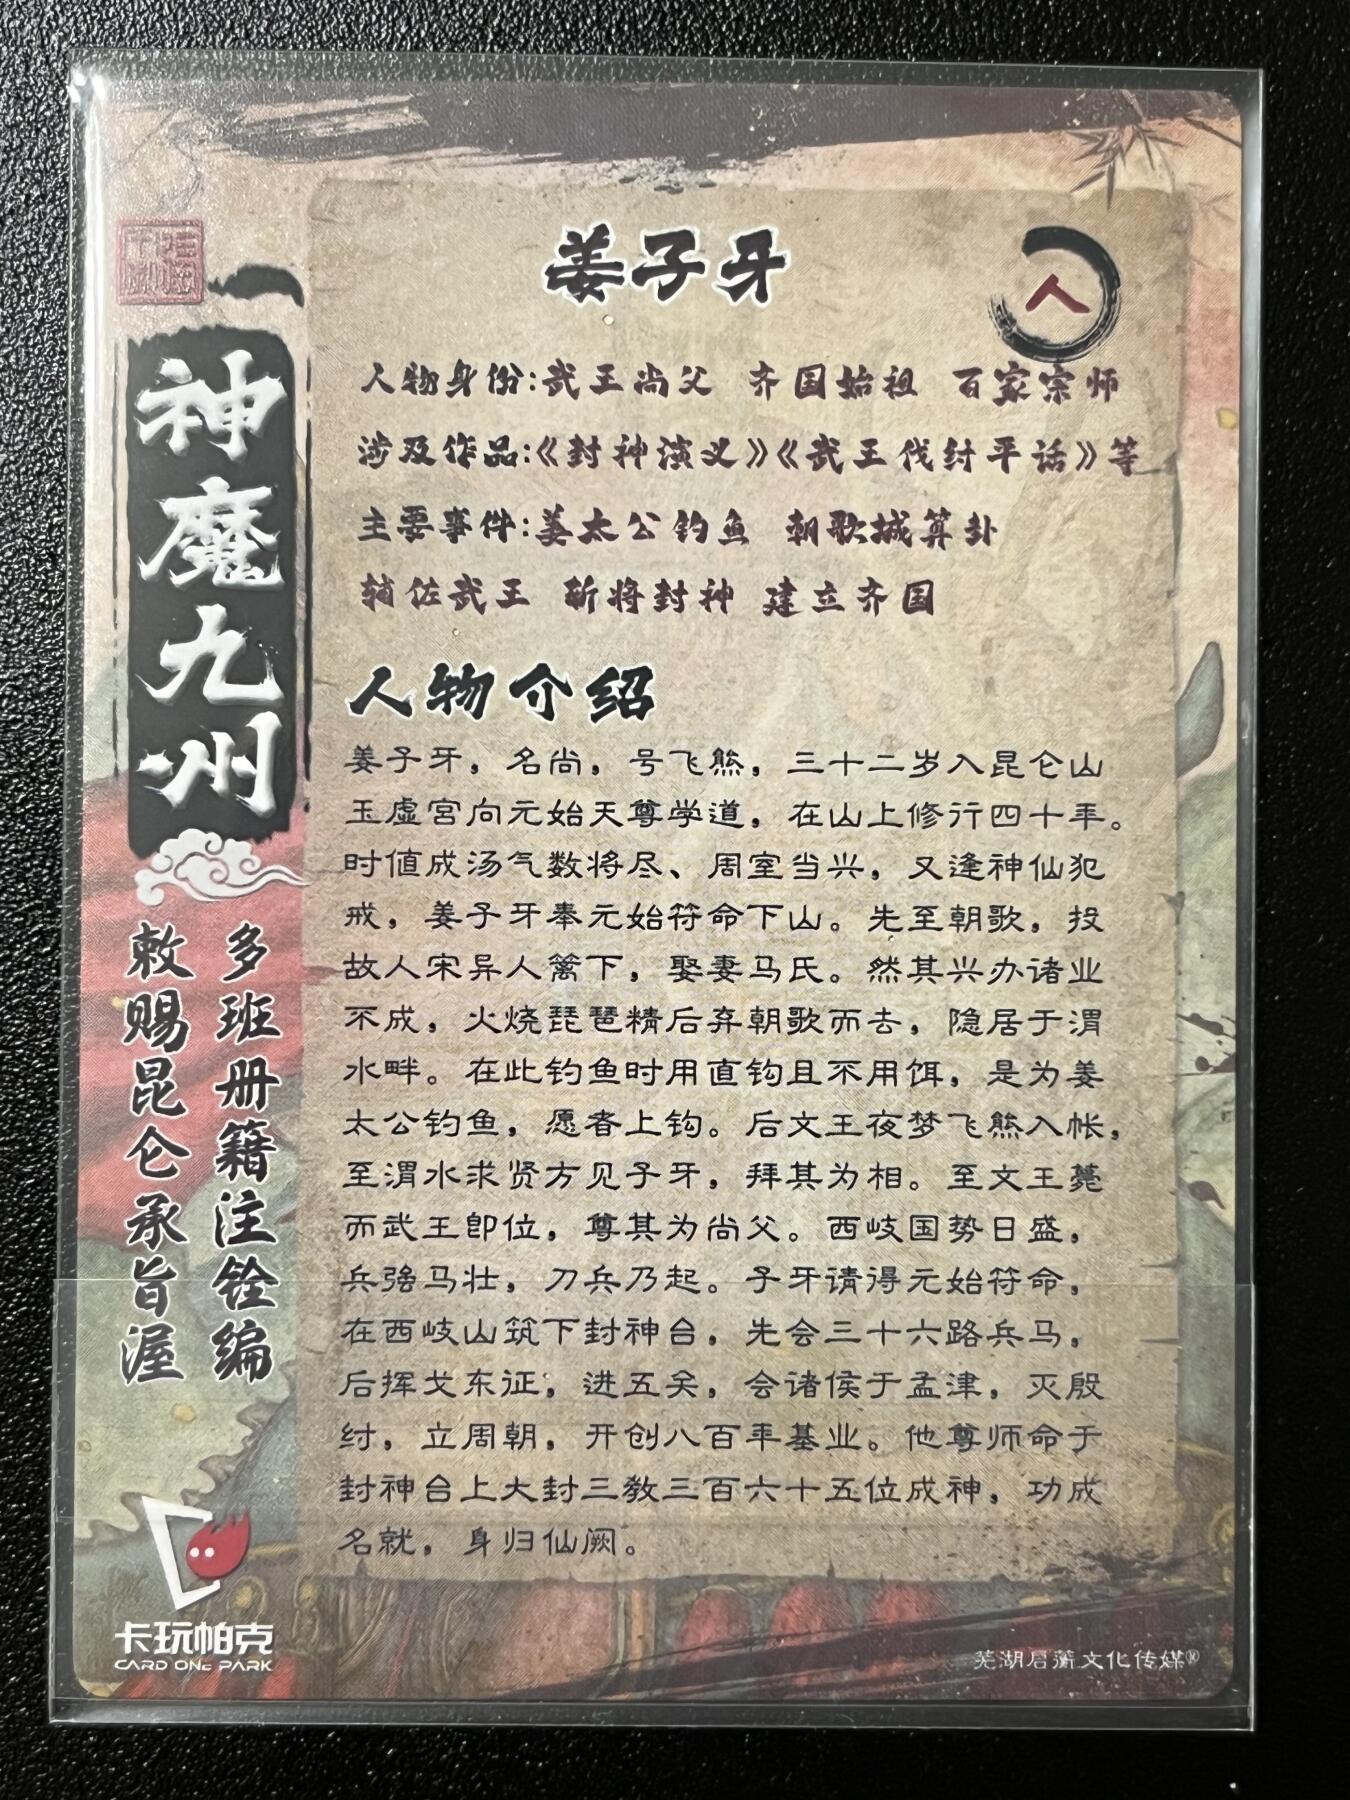 姜子牙
人
人物身份:武王尚父 齐国始祖 百家宗师
涉及作品:《封神演义》《武王伐纣平话》等
主要事件:姜太公钓鱼 朝歌城算卦
辅佐武王 斩将封神 建立齐国
人物介绍
姜子牙，名尚，号飞熊，三十二岁入昆仑山
玉虚宫向元始天尊学道，在山上修行四十年。
时值成汤气数将尽、周室当兴，又逢神仙犯
戒，姜子牙奉元始符命下山。先至朝歌，投
故人宋异人篱下，娶妻马氏。然其兴办诸业
不成，火烧琵琶精后弃朝歌而去，隐居于渭
水畔。在此钓鱼时用直钩且不用饵，是为姜
太公钓鱼，愿者上钩。后文王夜梦飞熊入帐，
至渭水求贤方见子牙，拜其为相。至文王薨
而武王即位，尊其为尚父。西岐国势日盛，
兵强马壮，刀兵乃起。子牙请得元始符命，
在西岐山筑下封神台，先会三十六路兵马，
后挥戈东征，进五关，会诸侯于孟津，灭殷
纣，立周朝，开创八百年基业。他尊师命于
封神台上大封三教三百六十五位成神，功成
名就，身归仙阙。
神魔九州
多班册籍注铨编
敕赐昆仑承旨渥
卡玩帕克
CARD ONE PARK
芜湖启蒲文化传媒®